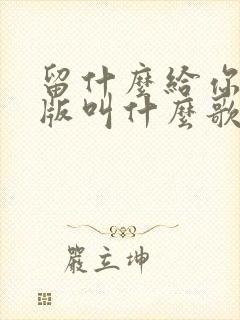 留什麼給你
版叫什麼歌
嚴立坤